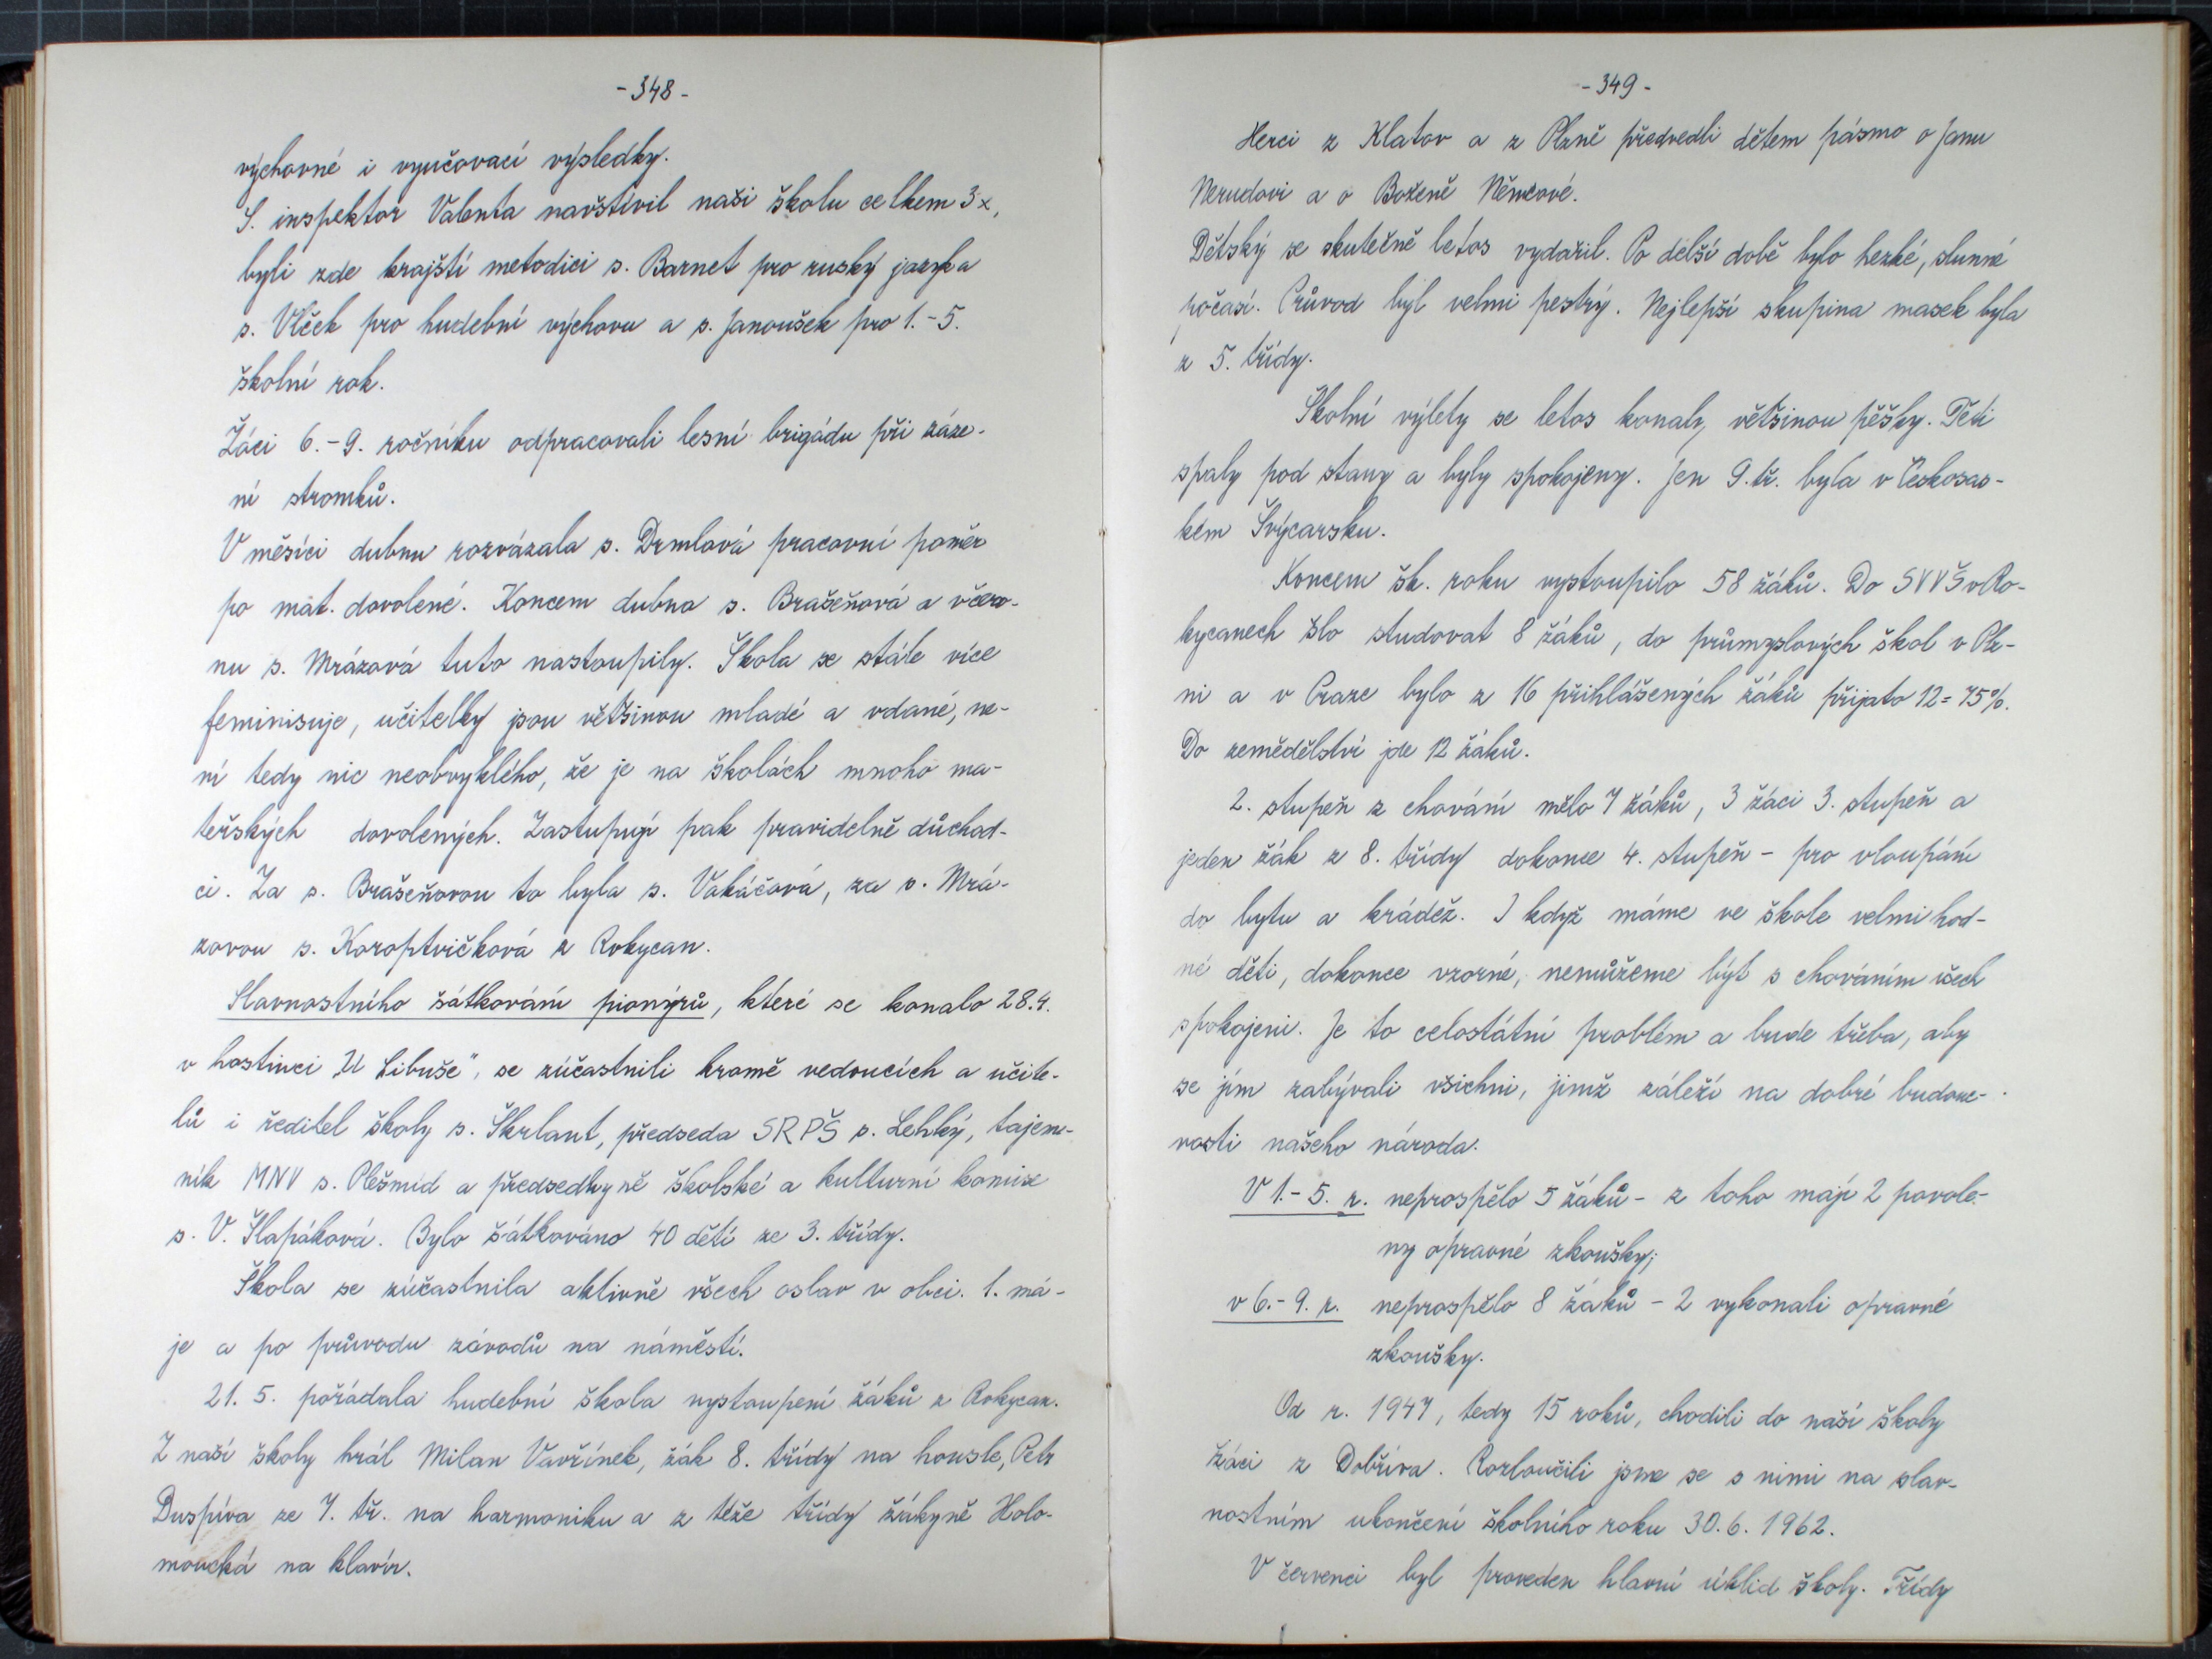 -348-
výchovné i vyučovací výsledky.
S. inspektor Valenta navštívil naši školu celkem 3x,
byli zde krajští metodici s. Barnet pro ruský jazyk a
s. Vlček pro hudební výchovu a s. Janoušek pro 1.-5.
školní rok.
Žáci 6.-9. ročníku odpracovali lesní brigádu při sáze-
ní stromků.
V měsíci dubnu rozvázala s. Drmlová pracovní poměr
po mat. dovolené. Koncem dubna s. Brašeňová a včerv-
nu s. Mrázová tuto nastoupily. Škola se stále více
feminisuje, učitelky jsou většinou mladé a vdané, ne-
ní tedy nic neobvyklého, že je na školách mnoho ma-
teřských dovolených. Zastupují pak pravidelně důchod-
ci. Za s. Brašeňovou to byla s. Vokáčová, za s. Mrá-
zovou s. Koroptvičková z Rokycan.
Slavnostního šátkování pionýrů, které se konalo 28.4.
v hostinci „U Libuše", se zúčastnili kromě vedoucích a učite-
lů i ředitel školy s. Škrlant, předseda SRPŠ s. Lehký, tajem-
ník MNV s. Plešmid a předsedkyně školské a kulturní komise
s. V. Šlapáková. Bylo šátkováno 40 dětí ze 3. třídy.
Škola se zúčastnila aktivně všech oslav v obci. 1. má-
je a po průvodu závodů na náměstí.
21. 5. pořádala hudební škola vystoupení žáků z Rokycan.
Z naší školy hrál Milan Vavřínek, žák 8. třídy na housle, Petr
Duspiva ze 7. tř. na harmoniku a z téže třídy žákyně Holo-
moucká na klavír.
-349-
Herci z Klatov a z Plzně předvedli dětem pásmo o Janu
Nerudovi a o Boženě Němcové.
Dětský se skutečně letos vydařil. Po delší době bylo hezké, slunné
počasí. Průvod byl velmi pestrý. Nejlepší skupina masek byla
z 5. třídy.
Školní výlety se letos konaly většinou pěšky. Děti
spaly pod stany a byly spokojeny. Jen 9. tř. byla v Českosas-
kém Švýcarsku.
Koncem šk. roku vystoupilo 58 žáků. Do SVVŠ v Ro-
kycanech šlo studovat 8 žáků, do průmyslových škol v Plz-
ni a v Praze bylo z 16 přihlášených žáků přijato 12 = 75%.
Do zemědělství jde 12 žáků.
2. stupeň z chování mělo 7 žáků, 3 žáci 3. stupeň a
jeden žák z 8. třídy dokonce 4. stupeň - pro vloupání
do bytu a krádež. I když máme ve škole velmi hod-
né děti, dokonce vzorné, nemůžeme být s chováním všech
spokojeni. Je to celostátní problém a bude třeba, aby
se jím zabývali všichni, jimž záleží na dobré budouc-
nosti našeho národa.
V 1.-5. r. neprospělo 5 žáků - z toho mají 2 povole-
ny opravné zkoušky;
v 6.-9. r. neprospělo 8 žáků - 2 vykonali opravné
zkoušky.
Od r. 1947, tedy 15 roků, chodili do naší školy
žáci z Dobříva. Rozloučili jsme se s nimi na slav-
nostním ukončení školního roku 30. 6. 1962.
V červenci byl proveden hlavní úklid školy. Třídy